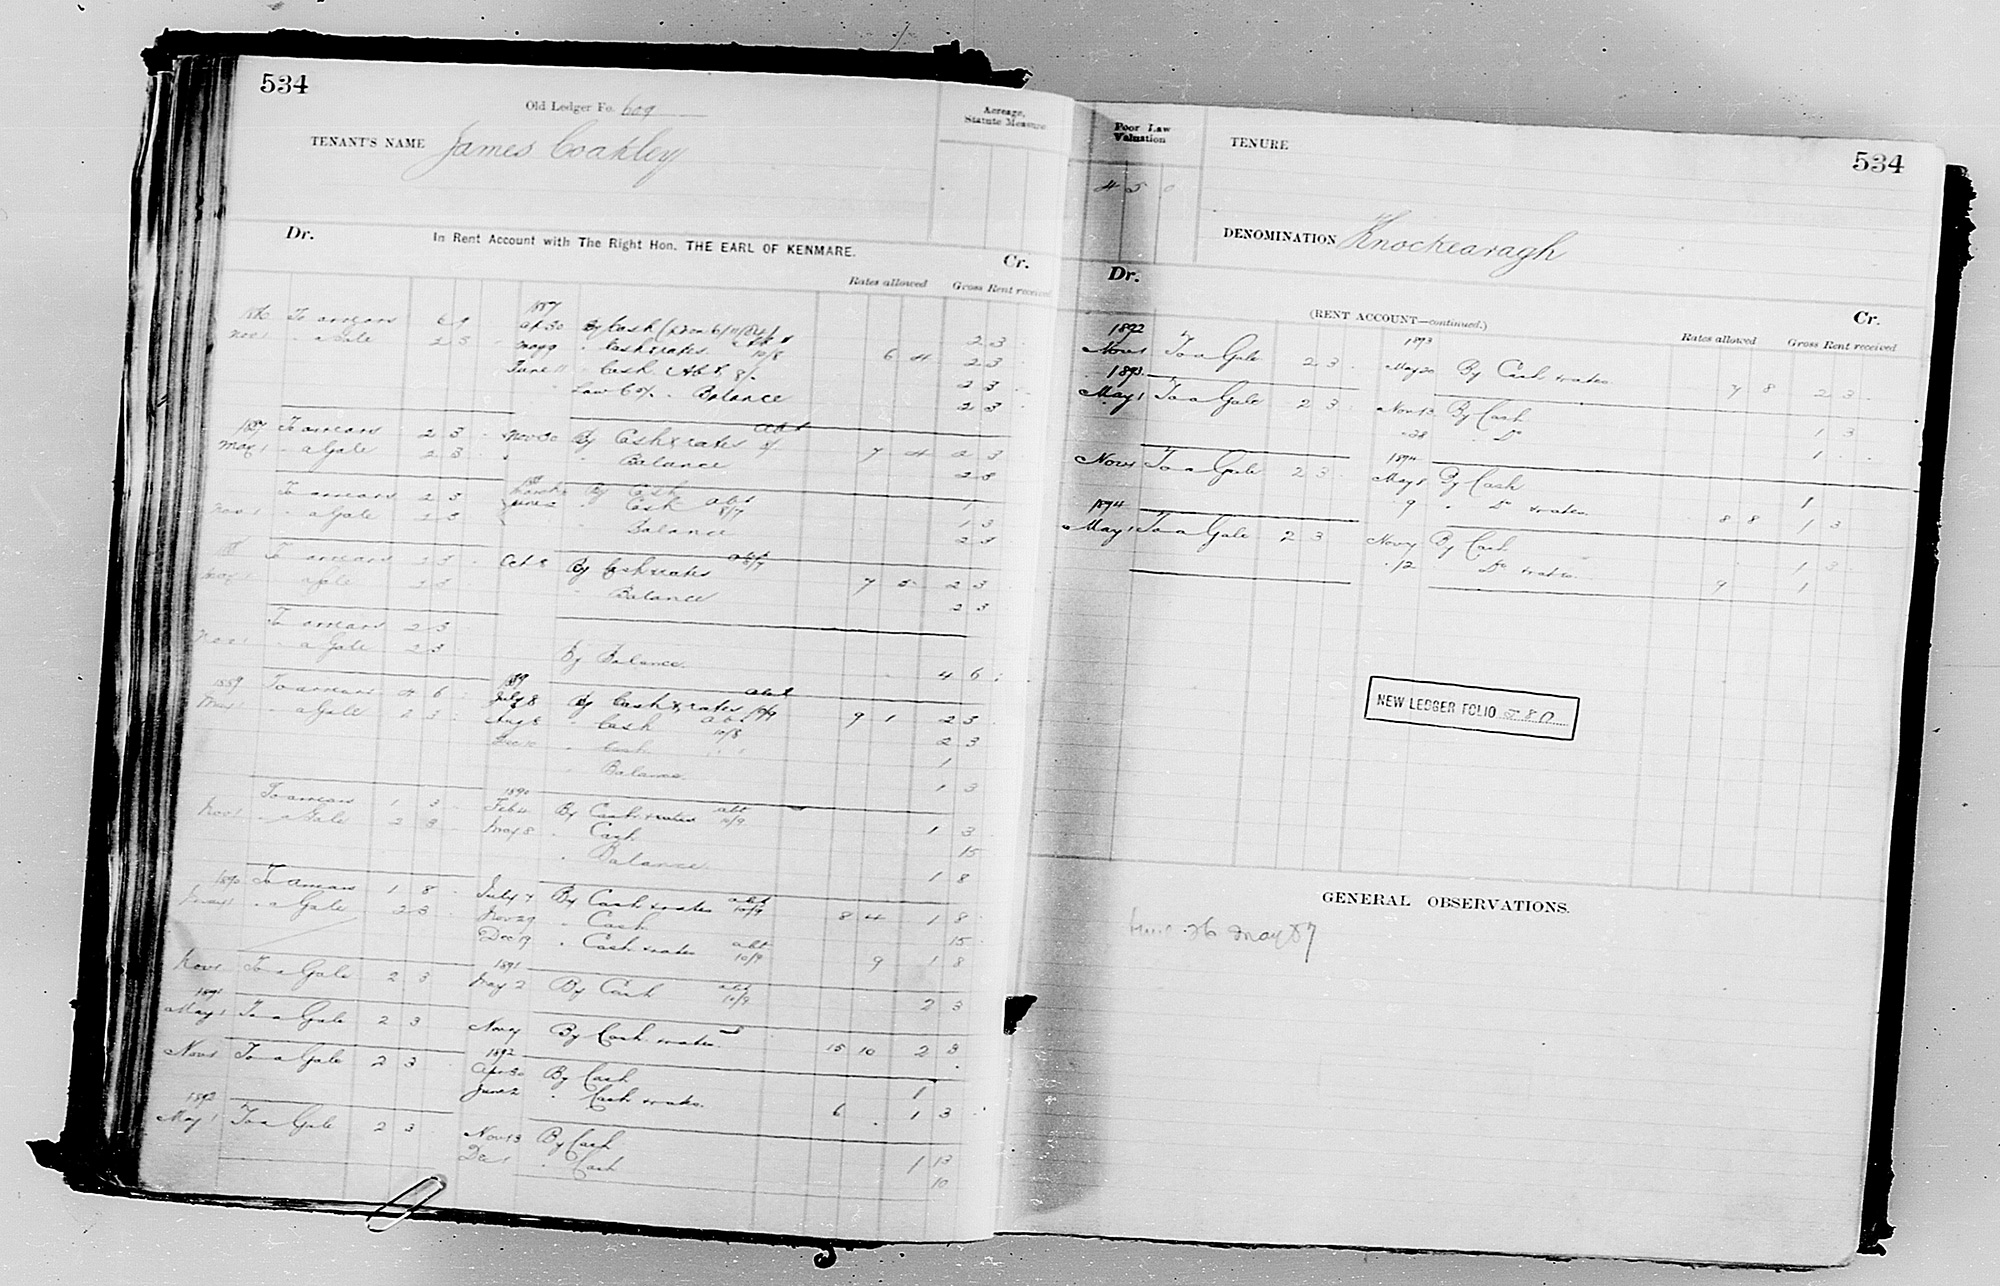 534
Old Ledger Fo. 609
TENANT'S NAME James Coakley
Acreage, Statute Measure
Dr. In Rent Account with The Right Hon. THE EARL OF KENMARE. Cr.
Rates allowed Gross Rent received
1887
To arrears 6 9 ap 30 By Cash 2 3
Nov 1 " a Gale 2 3 May 9 " Cash & rates 10/8 6 4 2 3
June 11 " Cash 2 3
Law Cos. " Balance 2 3
1887 To arrears 2 3 Nov 30 By Cash & rates abt 7 4 2 3
May 1 " a Gale 2 3 " Balance 2 3
To arrears 2 3 March By Cash 1
Nov 1 " a Gale 2 3 June 2 " Cash abt 8/7 1 3
" Balance 2 3
To arrears 2 3 Oct 8 By Cash & rates abt 8/7 7 5 2 3
May 1 " a Gale 2 3 " Balance 2 3
To arrears 2 3
Nov 1 " a Gale 2 3 By Balance 4 6
1889 1889
To arrears 4 6 July 8 By Cash & rates abt 10/9 9 1 2 3
May 1 " a Gale 2 3 Aug 8 " Cash abt 10/8 2 3
Dec 10 " Cash 1
" Balance 1 3
1890
To arrears 1 3 Feb 4 By Cash & rates abt 10/9 1 3
Nov 1 " a Gale 2 3 May 8 " Cash 15
" Balance 1 8
1890 To arrears 1 8 July 7 By Cash & rates abt 10/9 8 4 1 8
May 1 " a Gale 2 3 Nov 29 " Cash 15
Dec 19 " Cash & rates abt 10/9 9 1 8
1891
Nov 1 To a Gale 2 3 May 2 By Cash abt 10/9 2 3
1891
May 1 To a Gale 2 3 Nov 7 By Cash & rates 15 10 2 3
1892
Nov 1 To a Gale 2 3 Apr 30 By Cash 1
June 2 " Cash & rates 6 1 3
1892
May 1 To a Gale 2 3 Nov 13 By Cash 1 13
Dec 1 " Cash 10
Poor Law Valuation
4 5 0
TENURE
534
DENOMINATION Knockearagh
Dr. (RENT ACCOUNT—continued.) Cr.
Rates allowed Gross Rent received
1892 1893
Nov 1 To a Gale 2 3 May 20 By Cash & rates 7 8 2 3
1893
May 1 To a Gale 2 3 Nov 13 By Cash 1 3
" 28 " Do 1
1894
Nov 1 To a Gale 2 3 May 8 By Cash 1
" 9 " Do & rates 8 8 1 3
1894
May 1 To a Gale 2 3 Nov 7 By Cash 1 3
" 12 Do & rates 9 1
NEW LEDGER FOLIO 580
GENERAL OBSERVATIONS.
26 May 87